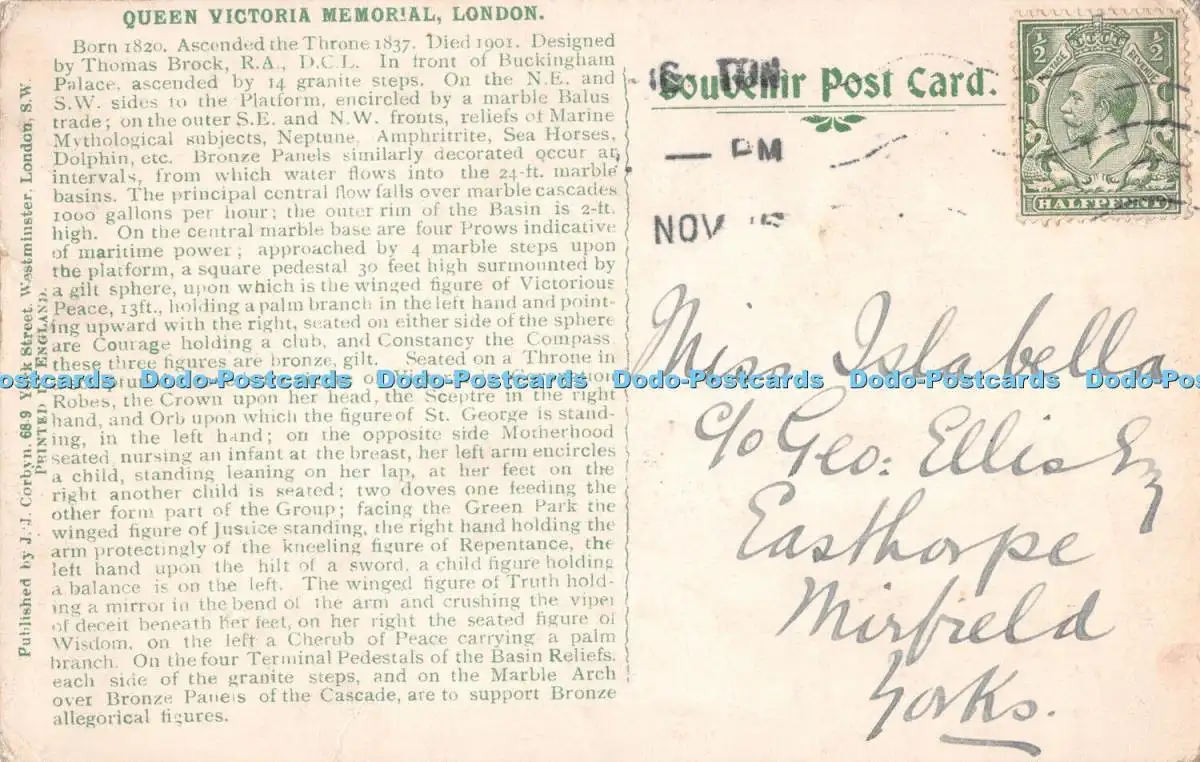 QUEEN VICTORIA MEMORIAL, LONDON.
Born 1820. Ascended the Throne 1837. Died 1901. Designed
by Thomas Brock, R.A., D.C.L. In front of Buckingham
Palace, ascended by 14 granite steps. On the N.E. and
S.W. sides to the Platform, encircled by a marble Balus
trade on outer S.E. and N.W. fronts, reliefs of Marine
Mythological subjects, Neptune, Amphritrite, Sea Horses,
Dolphin, etc. Bronze Panels similarly decorated occur at
intervals, from which water flows into the 24-ft. marble
basins. The principal central flow falls over marble cascades
1000 gallons per hour; the outer rim of the Basin is 2-ft.
high. On the central marble base are four Prows indicative
of maritime power; approached by 4 marble steps upon
the platform, a square pedestal 30 feet high surmounted by
a gilt sphere, upon which is the winged figure of Victorious
Peace, 13ft., holding a palm branch in the left hand and point-
ing upward with the right, seated on either side of the sphere
are Courage holding a club, and Constancy the Compass,
these three figures are bronze, gilt. Seated on a Throne in
Robes, the Crown upon her head, the Sceptre in the right
hand, and Orb upon which the figure of St. George is stand-
ing, in the left hand; on the opposite side Motherhood
seated nursing an infant at the breast, her left arm encircles
a child, standing leaning on her lap, at her feet on the
right another child is seated; two doves one feeding the
other form part of the Group; facing the Green Park the
winged figure of Justice standing, the right hand holding the
arm protectingly of the kneeling figure of Repentance, the
left hand upon the hilt of a sword, a child figure holding
a balance is on the left. The winged figure of Truth hold-
ing a mirror in the bend of the arm and crushing the viper
of deceit beneath her feet, on her right the seated figure of
Wisdom, on the left a Cherub of Peace carrying a palm
branch. On the four Terminal Pedestals of the Basin Reliefs,
each side of the granite steps, and on the Marble Arch
over Bronze Panels of the Cascade, are to support Bronze
allegorical figures.
Published by J. J. Corbyn, 68-9 York Street, Westminster, London, S.W.
PRINTED IN ENGLAND.
Souvenir Post Card.
PM
NOV
1/2 1/2
POSTAGE REVENUE
HALFPENNY
Miss Islabella
c/o Geo: Ellis Esq
Easthorpe
Mirfield
Yorks.
Dodo-Postcards Dodo-Postcards Dodo-Postcards Dodo-Postcards